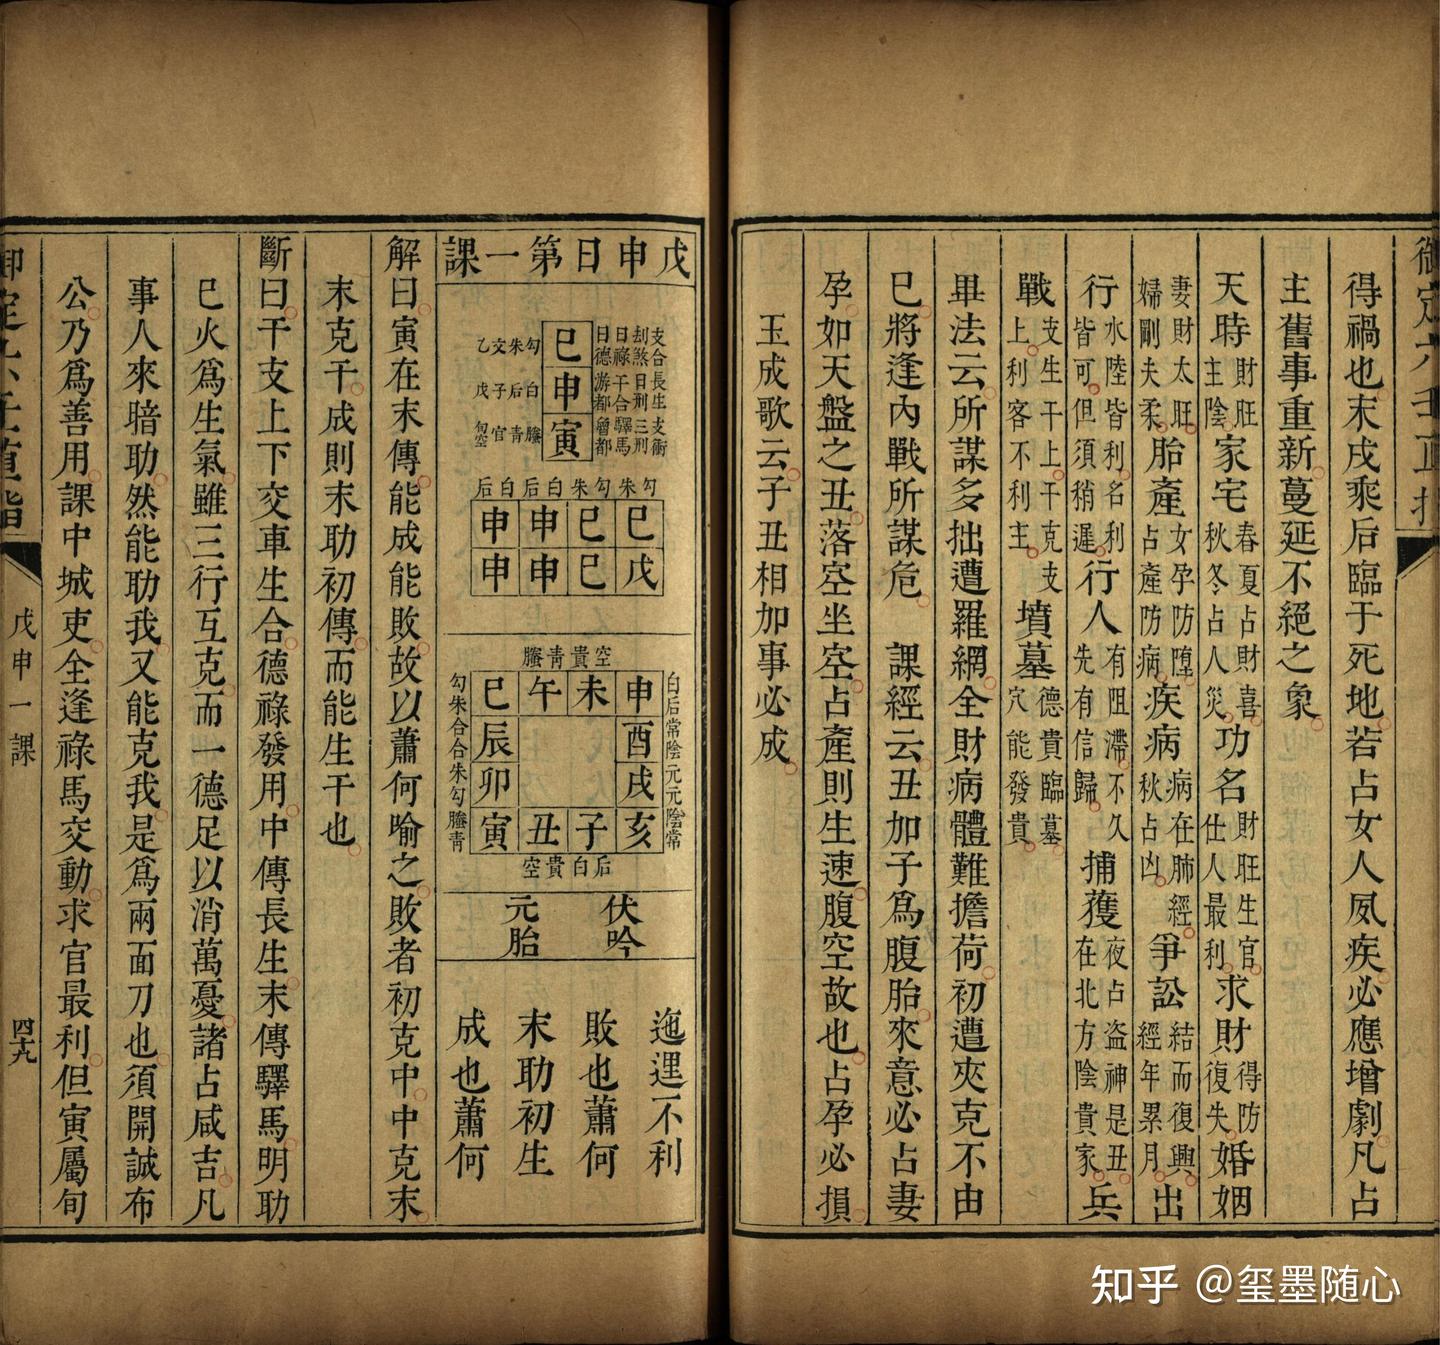 得禍也末戌乘后臨于死地若占女人夙疾必應增劇凡占
主舊事重新蔓延不絕之象
天時財旺主陰家宅春夏占財喜秋冬占人災功名財旺生官仕人最利求財得防復失婚姻
妻財太旺婦剛夫柔胎產女孕防墮占產防病疾病病在肺經秋占凶爭訟結而復興經年累月出
行水陸皆利名利皆可但須稍遲行人有阻滯不久先有信歸捕獲夜占盗神是丑在北方陰貴家兵
戰支生干上干克支上利客不利主墳墓德貴臨墓穴能發貴
畢法云所謀多拙遭羅網全財病體難擔荷初遭夾克不由
巳將逢內戰所謀危 課經云丑加子為腹胎來意必占妻
孕如天盤之丑落空坐空占產則生速腹空故也占孕必損
玉成歌云子丑相加事必成
戊申日第一課
支合長生支衝
刦煞日刑三刑
日祿干合驛馬
日德游都魯都
巳申寅
勾朱交乙
白后子戊
螣青官旬空
勾朱勾朱白后白后
巳巳申申
戊巳申申
空貴青螣
申未午巳
酉辰
戌卯
亥子丑寅
白后常陰元元陰常
勾朱合合朱勾螣青
后白貴空
伏吟
元胎
迤逕不利
敗也蕭何
末助初生
成也蕭何
解曰寅在末傳能成能敗故以蕭何喻之敗者初克中中克末
末克干成則末助初傳而能生干也
斷曰干支上下交車生合德祿發用中傳長生末傳驛馬明助
巳火為生氣雖三行互克而一德足以消萬憂諸占咸吉凡
事人來暗助然能助我又能克我是為兩面刀也須開誠布
公乃為善用課中城吏全逢祿馬交動求官最利但寅屬旬
戊申一課
四十九
知乎 @玺墨随心